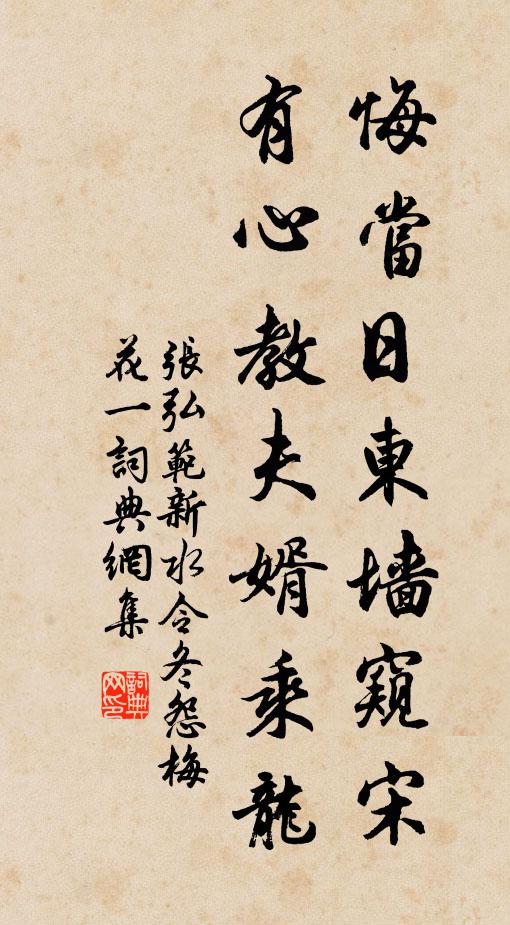 悔當日東墻窺宋
有心教夫婿乘龍
張弘範新水令冬怨梅
花一詞典網集
詞典
网印